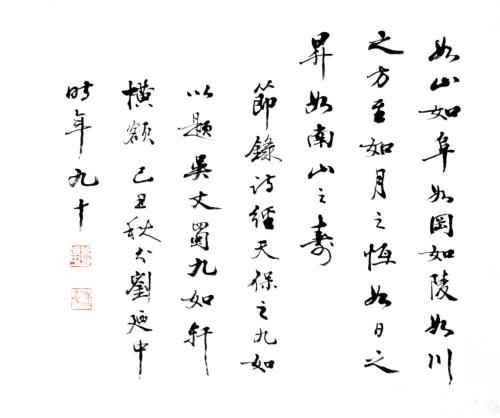 如山如阜如岡如陵如川
之方至如月之恆如日之
昇如南山之壽
節錄詩經天保之九如
以題吳丈蜀九如軒
橫額己丑秋分劉廼中
時年九十